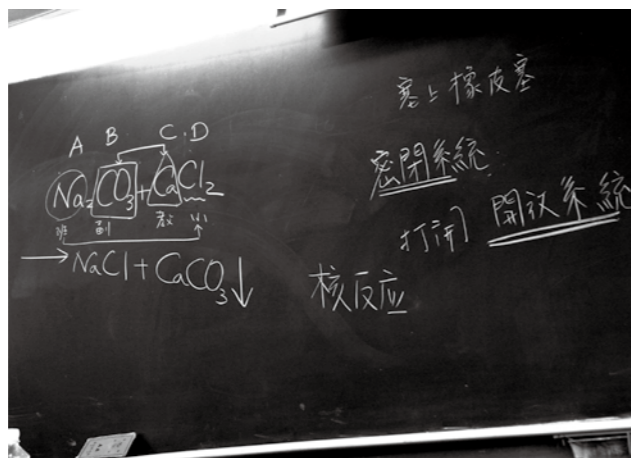 A B C.D
Na₂CO₃+CaCl₂
班 副
→NaCl+CaCO₃↓
塞上橡皮塞
密閉系統
打開 開放系統
核反应